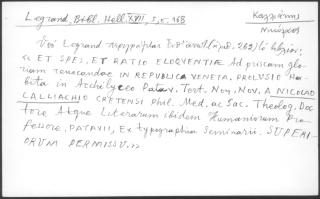 Legrand, Bibl. Hell. XVIII, I, σ. 168
Νικόλαος
Ὑπὸ Legrand περιγράφεται
« ET SPES, ET RATIO ELOQUENTIÆ Ad priscam glo
riam revocandae IN REPUBLICA VENETA. PROLUSIO Ha-
bita in Archilyceo Patav. Tert. Non. Nov. A NICOLAO
CALLIACHIO CRETENSI Phil. Med. ac Sac. Theolog. Doc
tore Atque Literarum ibidem Humaniorum Pro
fessore, PATAVII, Ex typographia Seminarii. SUPERI
ORUM PERMISSU.»